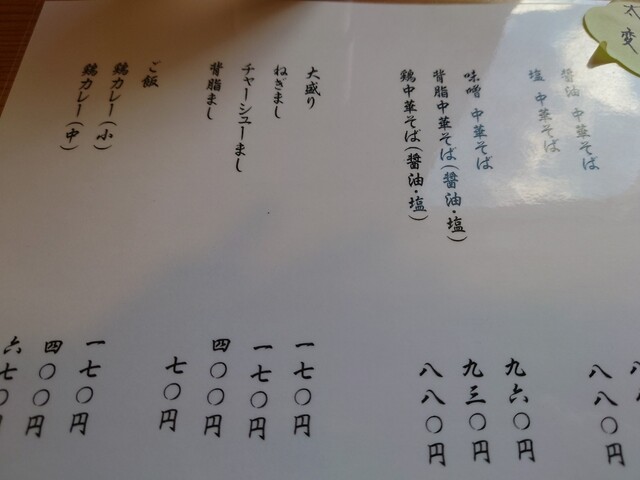 大変
醤油 中華そば
塩 中華そば 八八〇円
味噌 中華そば 九六〇円
背脂中華そば(醤油・塩) 九三〇円
鶏中華そば(醤油・塩) 八八〇円
大盛り 一七〇円
ねぎまし 一七〇円
チャーシューまし 四〇〇円
背脂まし 七〇円
ご飯 一七〇円
鶏カレー(小) 四〇〇円
鶏カレー(中) 六七〇円